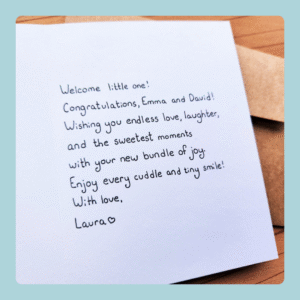 Welcome little one!
Congratulations, Emma and David!
Wishing you endless love, laughter,
and the sweetest moments
with your new bundle of joy.
Enjoy every cuddle and tiny smile!
With love,
Laura♡